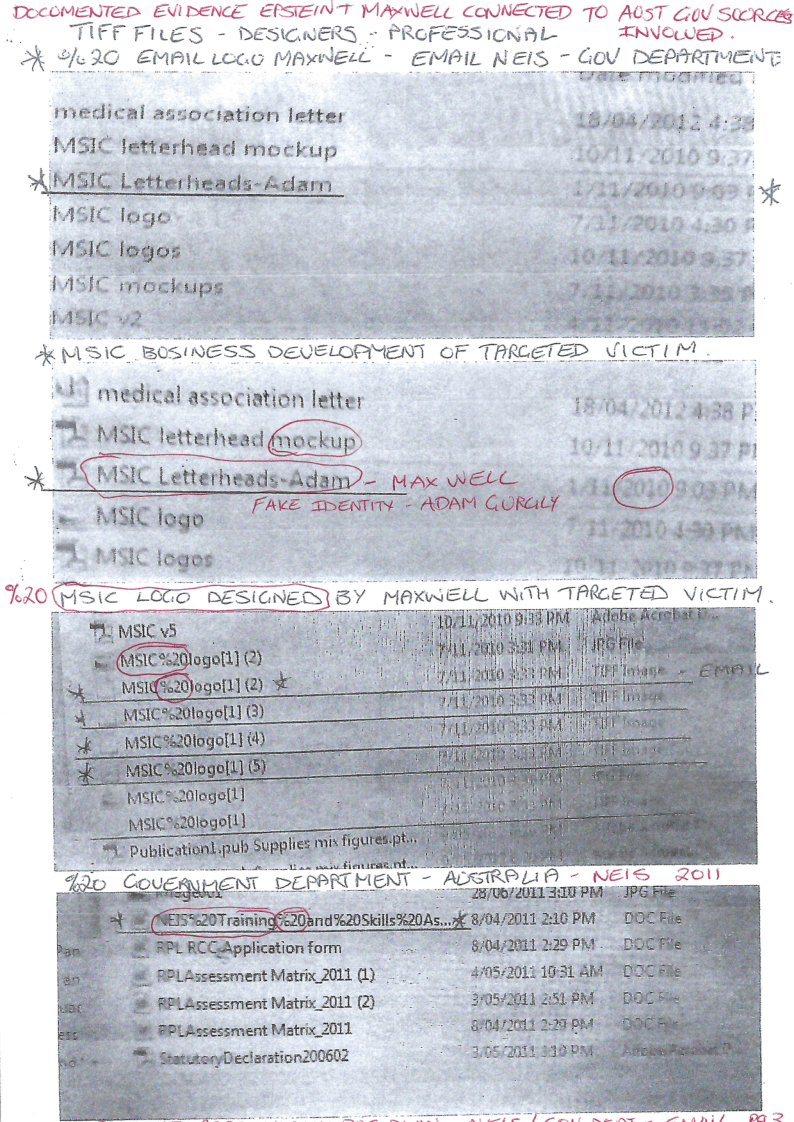 DOCUMENTED EVIDENCE EPSTEIN + MAXWELL CONNECTED TO AUST GOV SOURCES
TIFF FILES - DESIGNERS - PROFESSIONAL INVOLVED.
* %20 EMAIL LOGO MAXWELL - EMAIL NEIS - GOV DEPARTMENT
Date modified
medical association letter 18/04/2012 4:38
MSIC letterhead mockup 10/11/2010 9:37
* MSIC Letterheads-Adam 1/11/2010 9:03 *
MSIC logo 7/11/2010 4:30
MSIC logos 10/11/2010 9:37
MSIC mockups 7/11/2010 3:35
MSIC v2
* MSIC BUSINESS DEVELOPMENT OF TARGETED VICTIM.
medical association letter 18/04/2012 4:38 P
MSIC letterhead mockup 10/11/2010 9:37 P
* MSIC Letterheads-Adam - MAXWELL 1/11/2010 9:03 PM
FAKE IDENTITY - ADAM GURGILY
MSIC logo 7/11/2010 4:30 PM
MSIC logos 10/11/2010 9:37 PM
%20 MSIC LOGO DESIGNED BY MAXWELL WITH TARGETED VICTIM.
MSIC v5 10/11/2010 9:33 PM Adobe Acrobat D...
MSIC%20logo[1] (2) 7/11/2010 3:31 PM JPG File
* MSIC%20logo[1] (2) * 7/11/2010 3:33 PM TIFF Image - EMAIL
* MSIC%20logo[1] (3) 7/11/2010 3:33 PM TIFF Image
* MSIC%20logo[1] (4) 7/11/2010 3:33 PM TIFF Image
* MSIC%20logo[1] (5) TIFF Image
MSIC%20logo[1] JPG File
MSIC%20logo[1]
Publication1.pub Supplies mix figures.pt...
%20 GOVERNMENT DEPARTMENT - AUSTRALIA - NEIS 2011
28/06/2011 3:10 PM JPG File
* NEIS%20Training%20and%20Skills%20As... * 8/04/2011 2:10 PM DOC File
RPL RCC Application form 8/04/2011 2:29 PM DOC File
RPLAssessment Matrix_2011 (1) 4/05/2011 10:31 AM DOC File
RPLAssessment Matrix_2011 (2) 3/05/2011 2:51 PM DOC File
RPLAssessment Matrix_2011 8/04/2011 2:29 PM DOC File
StatutoryDeclaration200602 3/05/2011 3:10 PM Adobe Acrobat D...